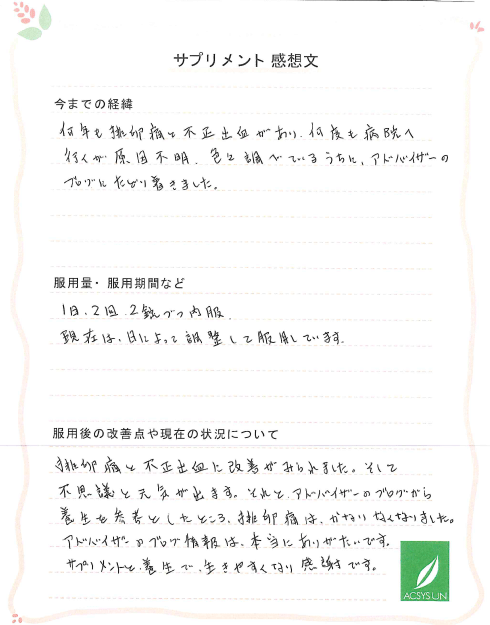 サプリメント 感想文
今までの経緯
何年も排卵痛と不正出血があり、何度も病院へ
行くが原因不明。色々調べているうちに、アドバイザーの
ブログにたどり着きました。
服用量・服用期間など
1日、2回 2錠づつ内服。
現在は、日によって調整して服用しています。
服用後の改善点や現在の状況について
排卵痛と不正出血に改善がみられました。そして
不思議と元気が出ます。それと、アドバイザーのブログから
養生を参考としたところ、排卵痛は、かなりなくなりました。
アドバイザーのブログ情報は、本当にありがたいです。
サプリメントと養生で、生きやすくなり感謝です。
ACSYSUN